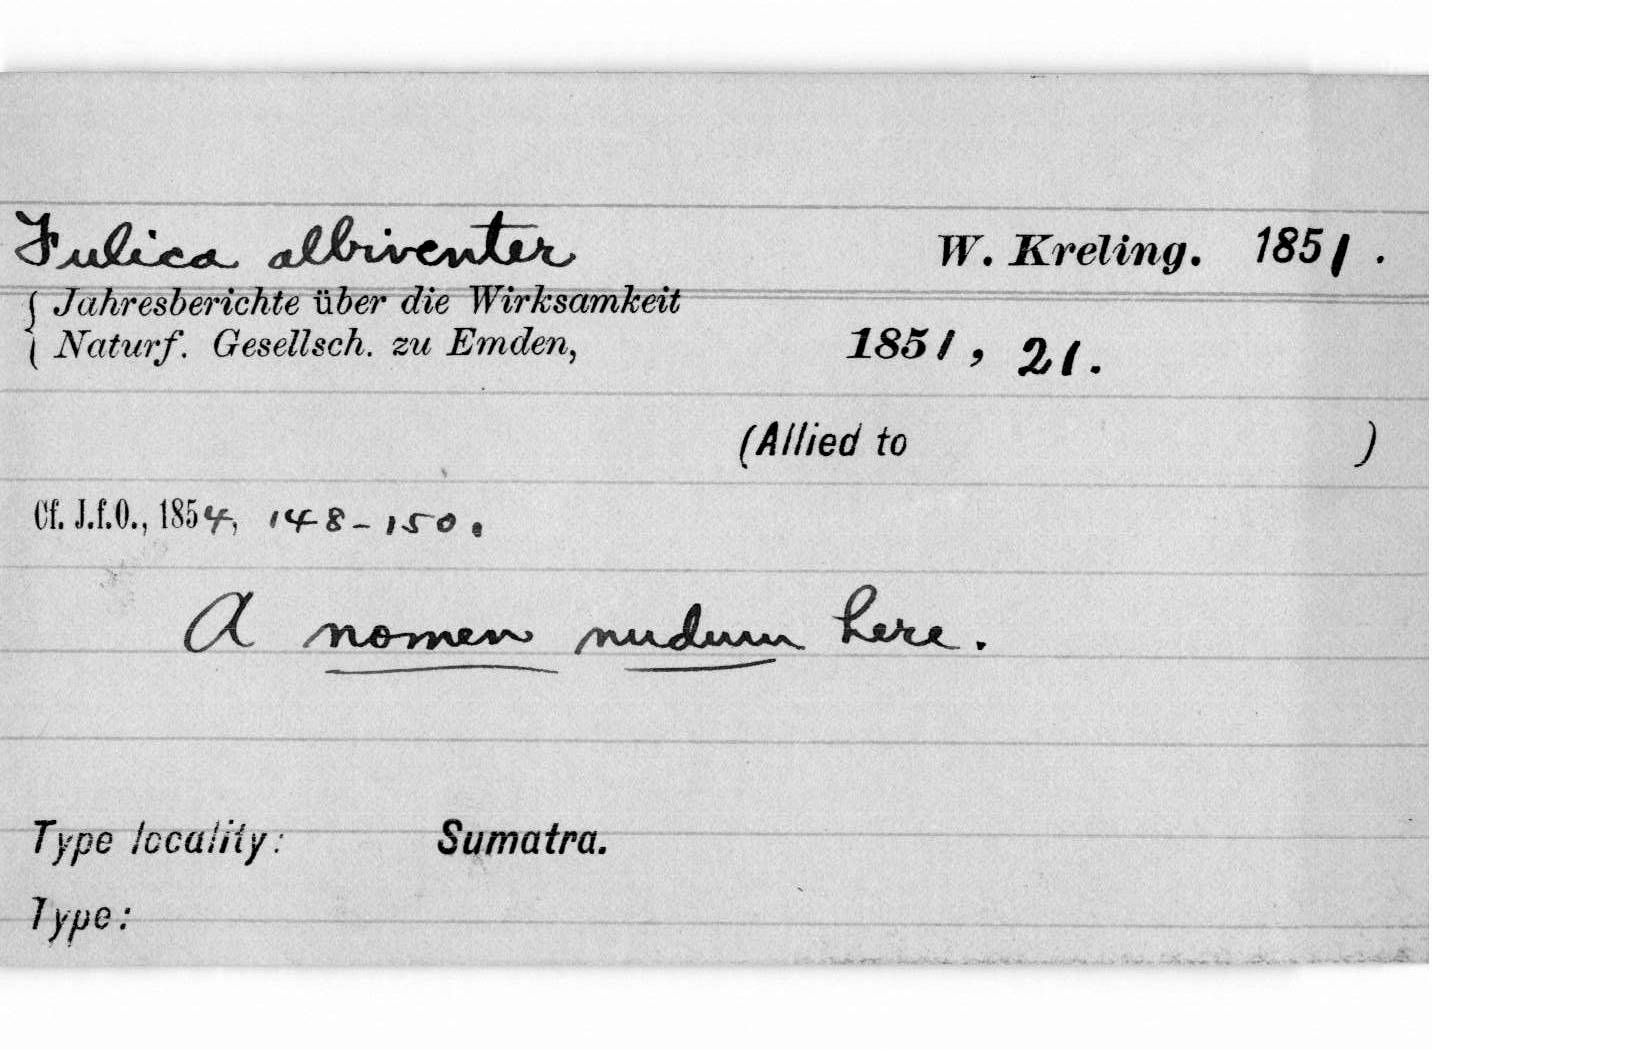 Fulica albiventer W. Kreling. 1851.
{ Jahresberichte über die Wirksamkeit
Naturf. Gesellsch. zu Emden, 1851, 21.
(Allied to )
Cf. J.f.O., 1854, 148-150.
A nomen nudum here.
Type locality: Sumatra.
Type: